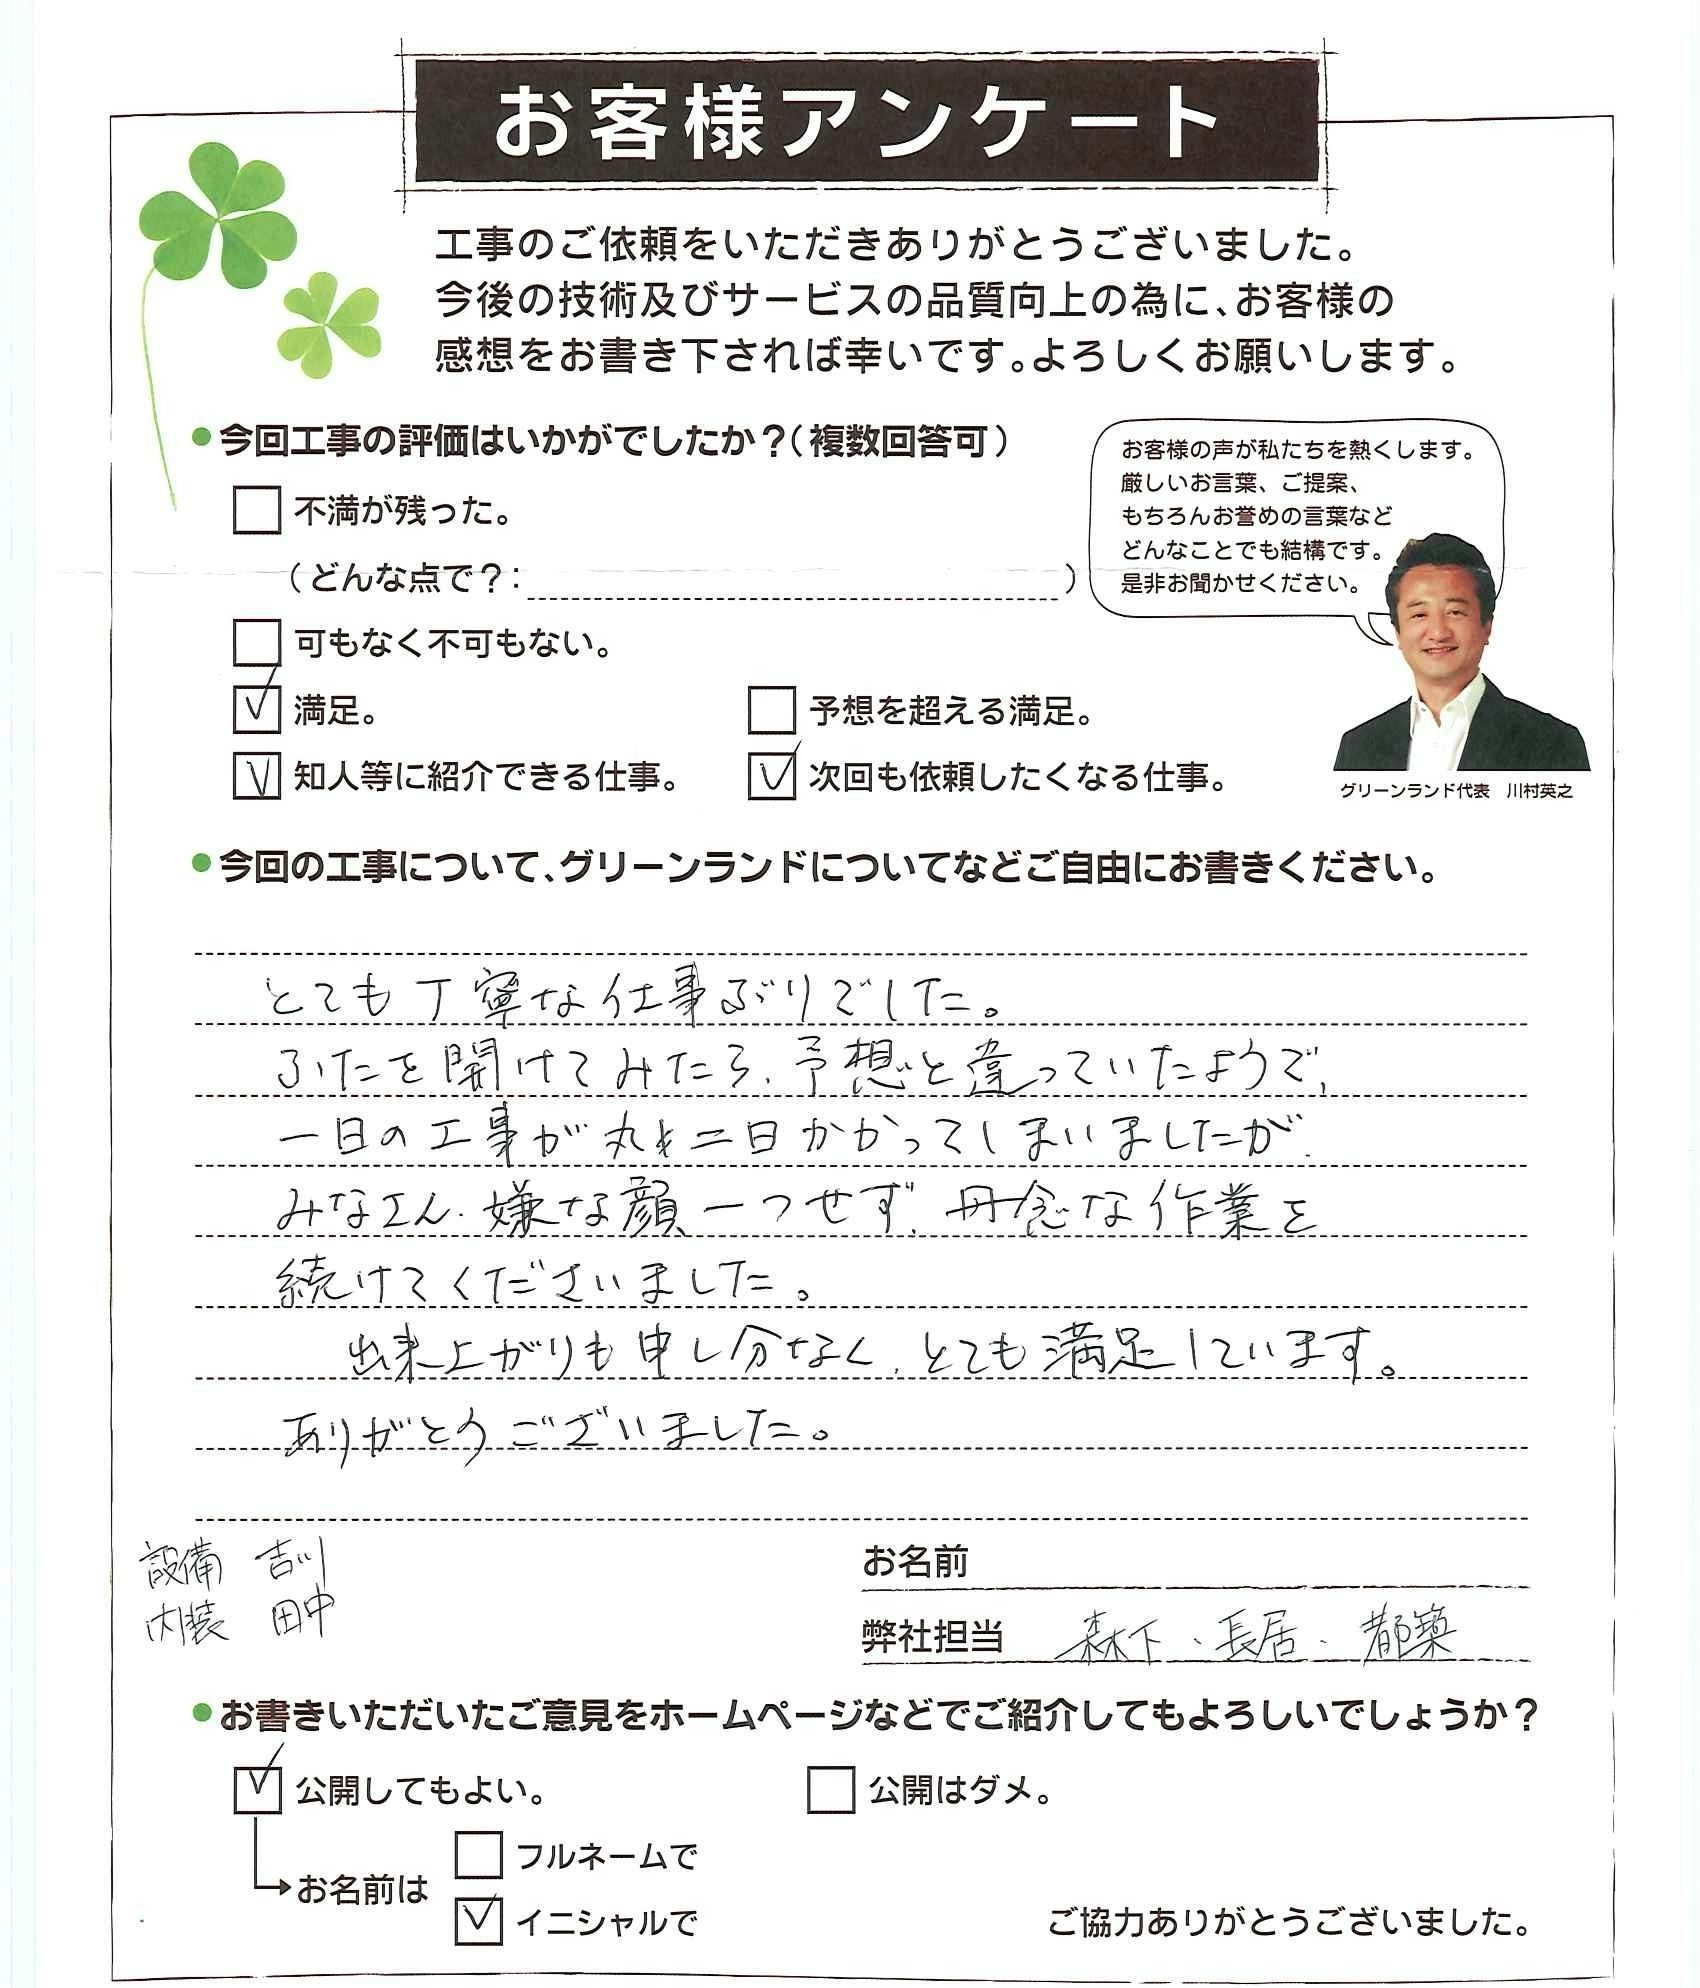 お客様アンケート
工事のご依頼をいただきありがとうございました。
今後の技術及びサービスの品質向上の為に、お客様の
感想をお書き下されば幸いです。よろしくお願いします。
●今回工事の評価はいかがでしたか？（複数回答可）
□ 不満が残った。
（どんな点で？： ）
□ 可もなく不可もない。
☑ 満足。 □ 予想を超える満足。
☑ 知人等に紹介できる仕事。 ☑ 次回も依頼したくなる仕事。
お客様の声が私たちを熱くします。
厳しいお言葉、ご提案、
もちろんお誉めの言葉など
どんなことでも結構です。
是非お聞かせください。
グリーンランド代表　川村英之
●今回の工事について、グリーンランドについてなどご自由にお書きください。
とても丁寧な仕事ぶりでした。
ふたを開けてみたら、予想と違っていたようで、
一日の工事が丸々二日かかってしまいましたが、
みなさん、嫌な顔一つせず、丹念な作業を
続けてくださいました。
出来上がりも申し分なく、とても満足しています。
ありがとうございました。
設備　吉川
内装　田中
お名前
弊社担当　森下、長居、都築
●お書きいただいたご意見をホームページなどでご紹介してもよろしいでしょうか？
☑ 公開してもよい。 □ 公開はダメ。
お名前は
□ フルネームで
☑ イニシャルで
ご協力ありがとうございました。